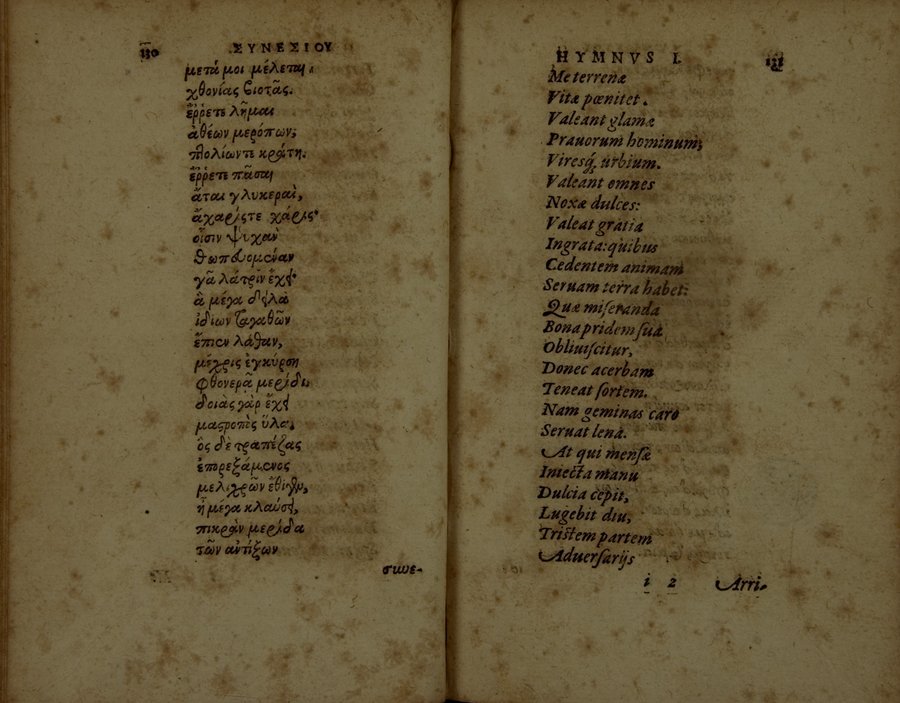 130
ΣΥΝΕΣΙΟΥ
μετά μοι μέλεται
χθονίας βιοτᾶς.
ἔῤῥετε λῆμαι
ἀθέων μερόπων,
πολίων τε κράτη.
ἔῤῥετε πᾶσαι
ἄται γλυκεραὶ,
ἄχαρίς τε χάρις·
οἷσιν ψυχὰν
θωπευομέναν
γᾶ λάτριν ἔχει·
ἃ μέγα δειλὰ
ἰδίων ἀγαθῶν
ἔπιεν λάθαν,
μέχρις ἐγκύρση
φθονερᾷ μερίδι.
δοιὰς γὰρ ἔχει
μαστροπὸς ὕλα.
ὃς δὲ τραπέζας
ἐπορεξάμενος
μελιχρῶν ἔθιγεν,
ἦ μεγα κλαύσει,
πικρὰν μερίδα
τῶν ἀντίξων
συνε-
HYMNVS I.
131
Me terrenæ
Vitæ pœnitet.
Valeant glamæ
Prauorum hominum,
Viresq́; urbium.
Valeant omnes
Noxæ dulces:
Valeat gratia
Ingrata: quibus
Cedentem animam
Seruam terra habet:
Quæ miſeranda
Bona pridem ſua
Obliuiſcitur,
Donec acerbam
Teneat ſortem.
Nam geminas caro
Seruat lena.
At qui menſæ
Iniecta manu
Dulcia cepit,
Lugebit diu,
Triſtem partem
Aduerſarijs
i 2
Arri-